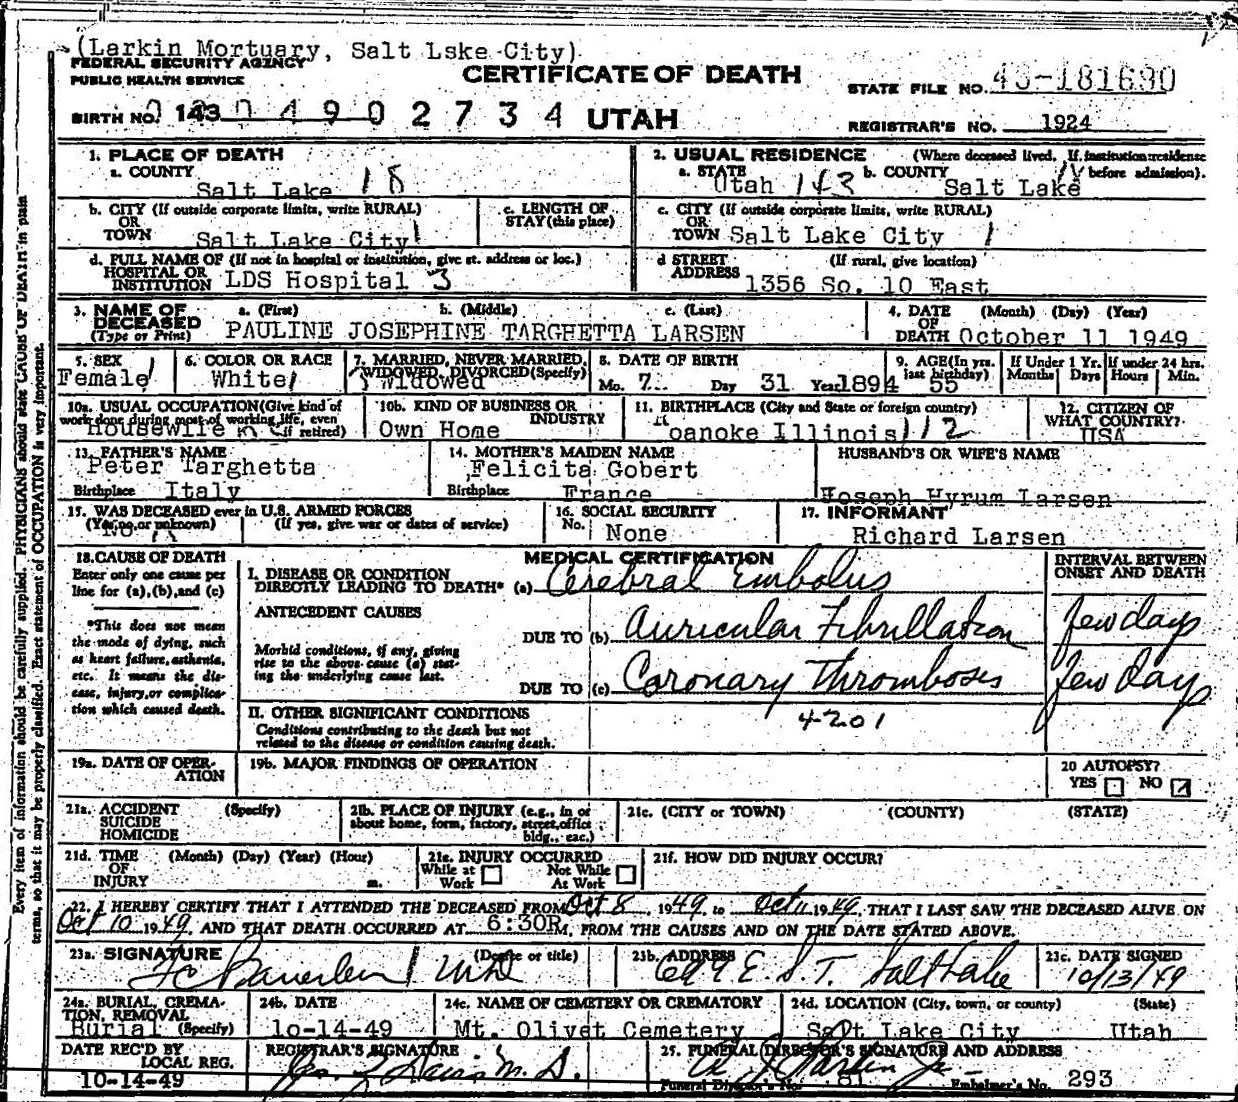 (Larkin Mortuary, Salt Lske City)
FEDERAL SECURITY AGENCY
PUBLIC HEALTH SERVICE
CERTIFICATE OF DEATH
STATE FILE NO.
BIRTH NO. 143 4 9 0 2 7 3 4 UTAH
REGISTRAR'S NO. 1924
1. PLACE OF DEATH
a. COUNTY
Salt Lake 18
2. USUAL RESIDENCE (Where deceased lived. If institution: residence before admission).
a. STATE b. COUNTY
Utah 143 Salt Lake
b. CITY (If outside corporate limits, write RURAL)
OR
TOWN Salt Lake City 1
c. LENGTH OF
STAY (this place)
c. CITY (If outside corporate limits, write RURAL)
OR
TOWN Salt Lake City 1
d. FULL NAME OF (If not in hospital or institution, give st. address or loc.)
HOSPITAL OR
INSTITUTION LDS Hospital 3
d STREET (If rural, give location)
ADDRESS
1356 So. 10 East
3. NAME OF a. (First) b. (Middle) c. (Last)
DECEASED
(Type or Print) PAULINE JOSEPHINE TARGHETTA LARSEN
4. DATE (Month) (Day) (Year)
OF
DEATH October 11 1949
5. SEX
Female
6. COLOR OR RACE
White
7. MARRIED, NEVER MARRIED,
WIDOWED, DIVORCED (Specify)
Widowed
8. DATE OF BIRTH
Mo. 7 Day 31 Year 1894
9. AGE (In yrs.
last birthday) 55
If Under 1 Yr.
Months Days
If under 24 hrs.
Hours Min.
10a. USUAL OCCUPATION (Give kind of
work done during most of working life, even
if retired)
Housewife
10b. KIND OF BUSINESS OR
INDUSTRY
Own Home
11. BIRTHPLACE (City and State or foreign country)
oanoke Illinois 112
12. CITIZEN OF
WHAT COUNTRY?
USA
13. FATHER'S NAME
Peter Targhetta
Birthplace Italy
14. MOTHER'S MAIDEN NAME
Felicita Gobert
Birthplace France
HUSBAND'S OR WIFE'S NAME
Joseph Hyrum Larsen
15. WAS DECEASED ever in U.S. ARMED FORCES
(Yes, no, or unknown) (If yes, give war or dates of service)
No
16. SOCIAL SECURITY
No. None
17. INFORMANT
Richard Larsen
18. CAUSE OF DEATH
Enter only one cause per
line for (a), (b), and (c)
*This does not mean
the mode of dying, such
as heart failure, asthenia,
etc. It means the dis-
ease, injury, or complica-
tion which caused death.
MEDICAL CERTIFICATION
INTERVAL BETWEEN
ONSET AND DEATH
I. DISEASE OR CONDITION
DIRECTLY LEADING TO DEATH* (a) Cerebral Embolus
ANTECEDENT CAUSES
DUE TO (b) Auricular Fibrillation few days
Morbid conditions, if any, giving
rise to the above cause (a) stat-
ing the underlying cause last.
DUE TO (c) Coronary Thrombosis few days
II. OTHER SIGNIFICANT CONDITIONS 4201
Conditions contributing to the death but not
related to the disease or condition causing death.
19a. DATE OF OPER-
ATION
19b. MAJOR FINDINGS OF OPERATION
20 AUTOPSY?
YES NO
21a. ACCIDENT (Specify)
SUICIDE
HOMICIDE
21b. PLACE OF INJURY (e.g., in or
about home, form, factory, street, office
bldg., eac.)
21c. (CITY or TOWN) (COUNTY) (STATE)
21d. TIME (Month) (Day) (Year) (Hour)
OF
INJURY m.
21e. INJURY OCCURRED
While at Work Not While At Work
21f. HOW DID INJURY OCCUR?
22. I HEREBY CERTIFY THAT I ATTENDED THE DECEASED FROM Oct 8, 1949, to Oct 11 1949, THAT I LAST SAW THE DECEASED ALIVE ON
Oct 10 1949, AND THAT DEATH OCCURRED AT 6:30P M, FROM THE CAUSES AND ON THE DATE STATED ABOVE.
23a. SIGNATURE (Degree or title)
23b. ADDRESS
E. S. T. Salt Lake
23c. DATE SIGNED
10/13/49
24a. BURIAL, CREMA-
TION, REMOVAL
Burial (Specify)
24b. DATE
10-14-49
24c. NAME OF CEMETERY OR CREMATORY
Mt. Olivet Cemetery
24d. LOCATION (City, town, or county) (State)
Salt Lake City Utah
DATE REC'D BY
LOCAL REG.
10-14-49
REGISTRAR'S SIGNATURE
M. D.
25. FUNERAL DIRECTOR'S SIGNATURE AND ADDRESS
Funeral Director's No. 81 Embalmer's No. 293
Every item of information should be carefully supplied. PHYSICIANS should state CAUSE OF DEATH in plain
terms, so that it may be properly classified. Exact statement of OCCUPATION is very important.